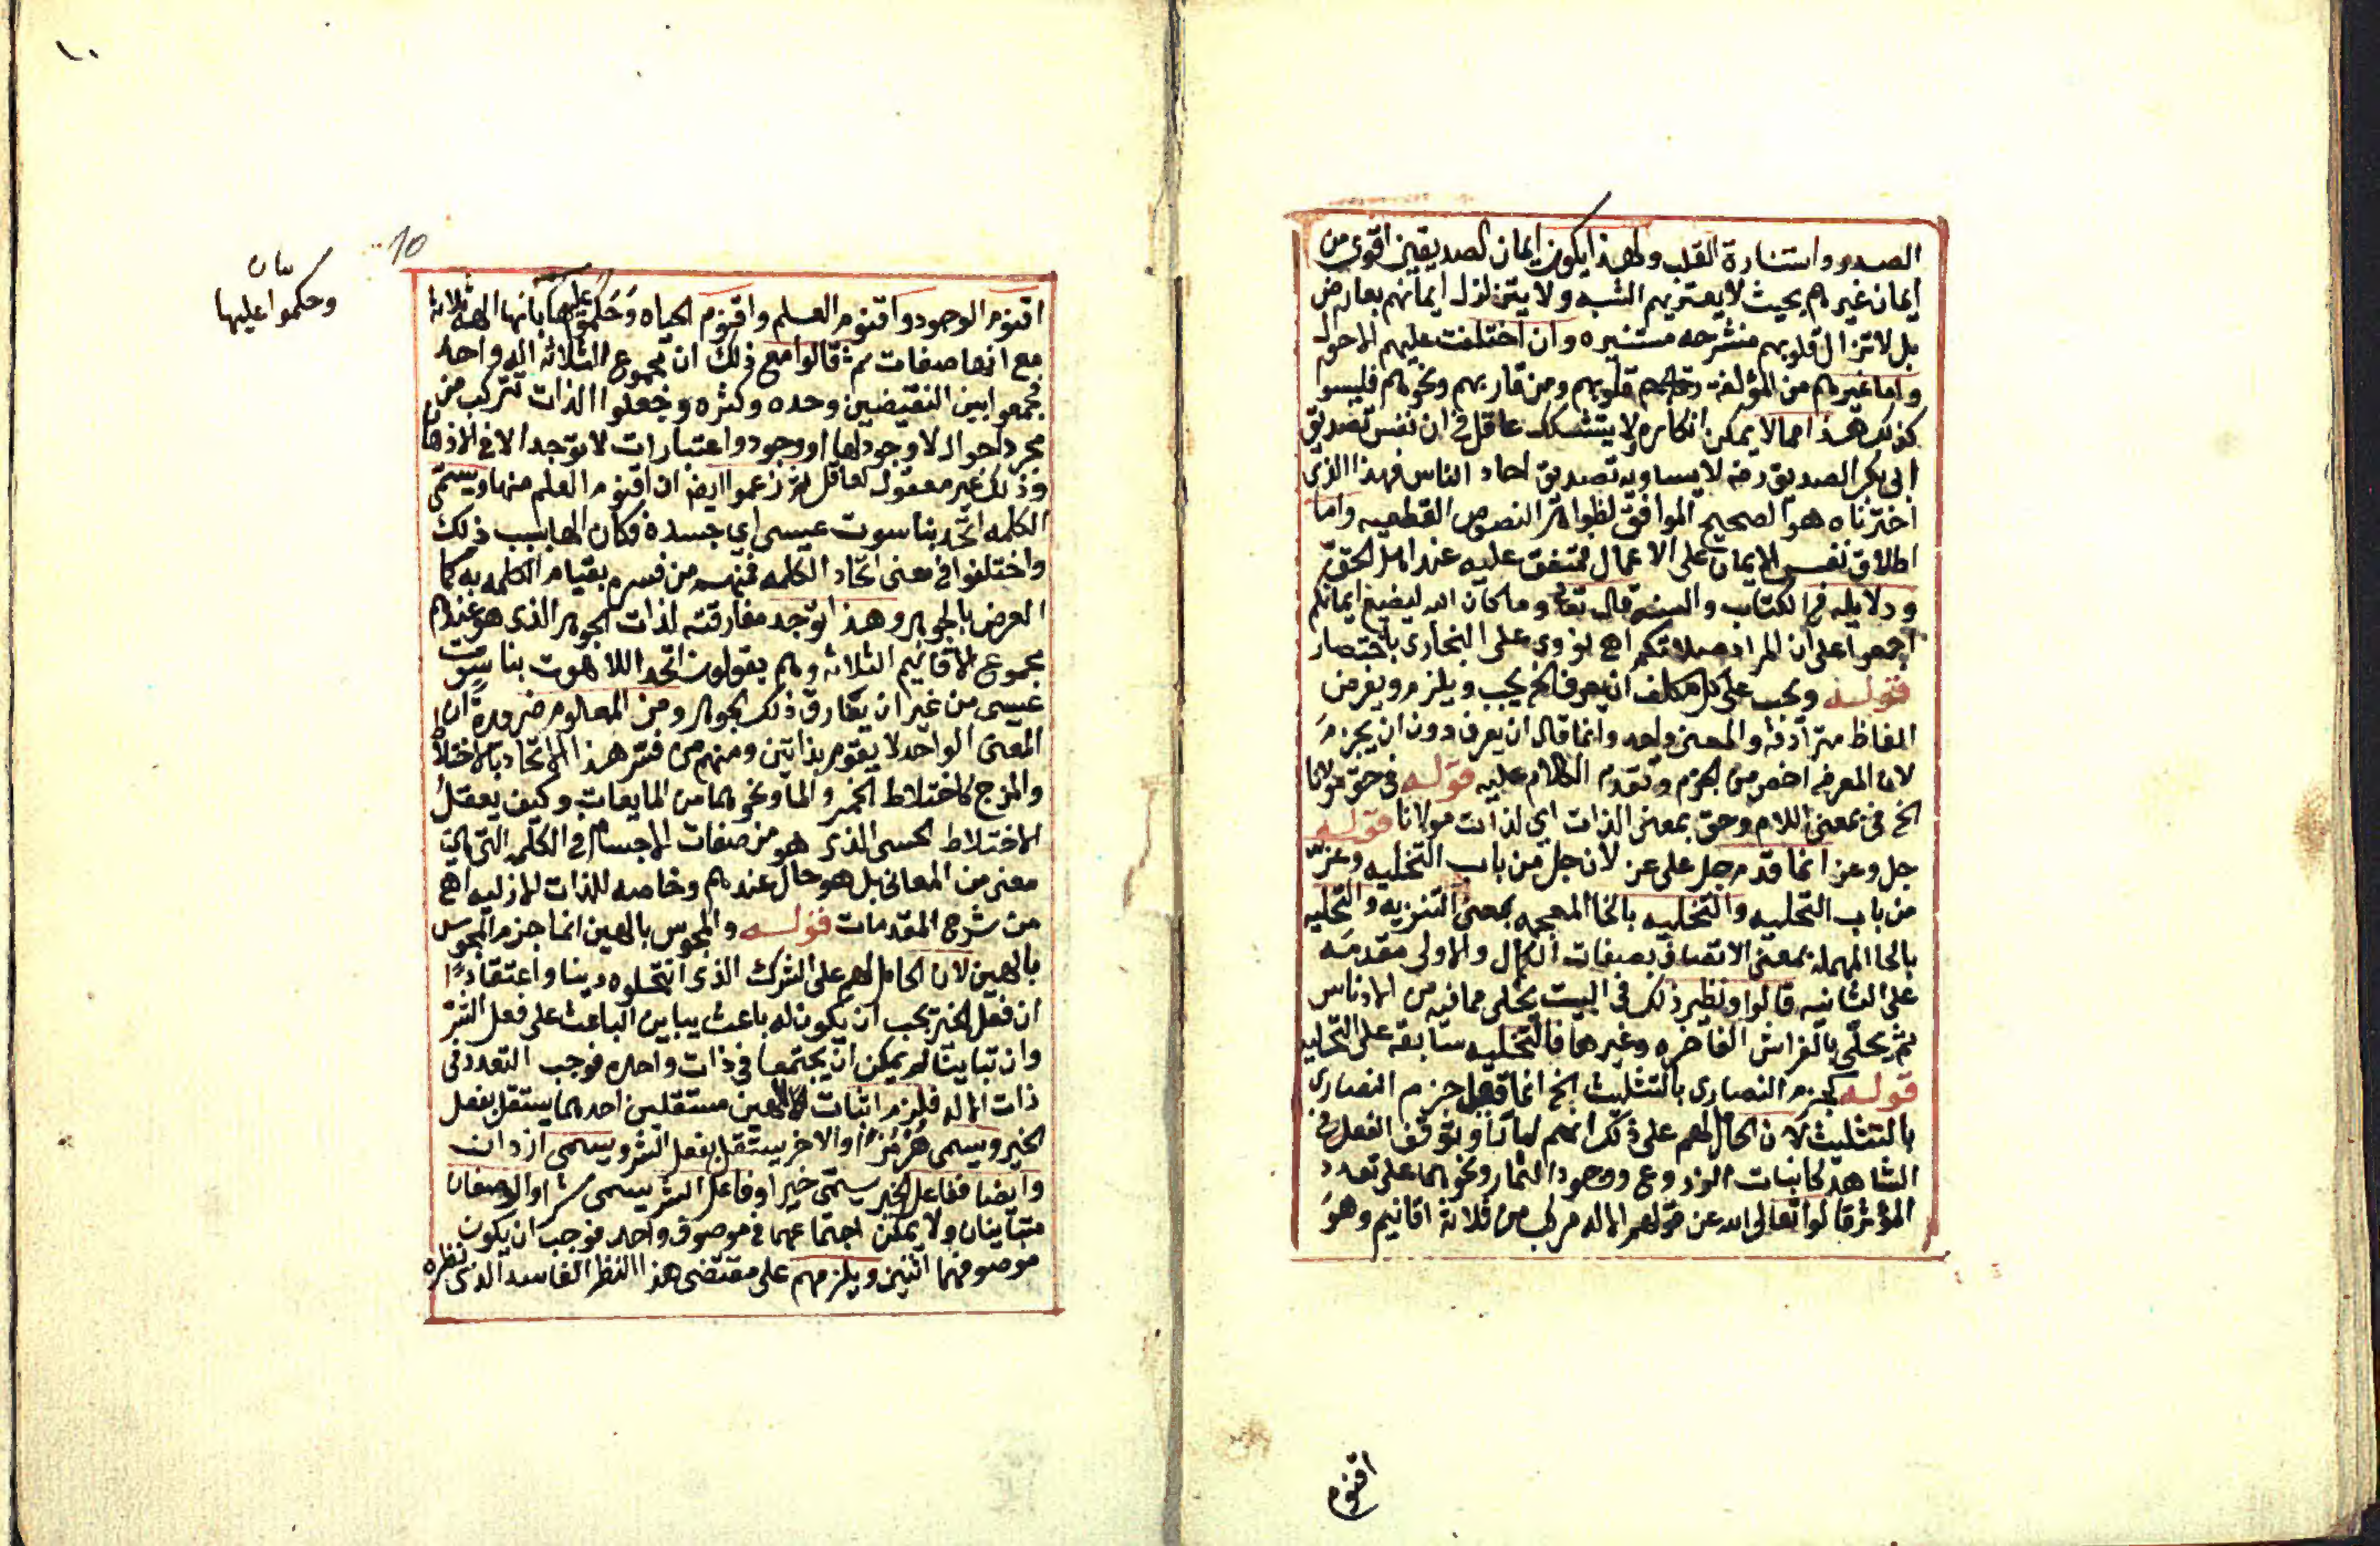 الصدور واستنارة القلب ولهذا يكون ايمان الصديقين اقوى من
ايمان غيرهم بحيث لا يعتريهم الشبه ولا يتزلزل ايمانهم بعارض
بل لا تزال قلوبهم منشرحه مستنيره وان اختلفت عليهم الاحوال
واما غيرهم من المؤلفة قلوبهم ومن قاربهم ونحوهم فليسوا
كذلك هذا مما لا يمكن انكاره ولا يتشكك عاقل في ان نفس تصديق
ابي بكر الصديق رضه لا يساويه تصديق احاد الناس فهذا الذي
اخترناه هو الصحيح الموافق لظواهر النصوص القطعيه واما
اطلاق نفس الايمان على الاعمال فمتفق عليه عند اهل الحق
ودلايله في الكتاب والسنه قال تعالى وما كان الله ليضيع ايمانكم
اجمعوا على ان المراد صلاتكم اهـ نووي على البخاري باختصار
قوله ويجب على كل مكلف ان يعرف الخ يجب ويلزم ويفرض
الفاظ مترادفة والمعنى واحد وانما قال ان يعرف دون ان يجزم
لان المعرفه اخص من الجزم وتقدم الكلام عليه قوله في حق مولانا
الخ في بمعنى اللام وحق بمعنى الذات اي لذات مولانا قوله
جل وعز انما قدم جل على عز لان جل من باب التخليه وعز
من باب التحليه والتخليه بالخا المعجمه بمعنى التنزيه والتحليه
بالحا المهمله بمعنى الاتصاف بصفات الكمال والاولى مقدمه
على الثانيه قالوا ونظير ذلك في البيت يخلى مما فيه من الادناس
ثم يحلّى بالفراش الفاخره وغيرها فالتخليه سابقة على التحليه
قوله كجزم النصارى بالتثليث الخ انما جزم النصارى
بالتثليث لان الحامل لهم على ذلك انهم لما راوا توقف الفعل في
الشاهد كانبات الزروع ووجود الثمار ونحوهما على تعدد
المؤثر قالوا تعالى الله عن قولهم الاله مركب من ثلاثة اقانيم وهو
اقنوم
١٠
10
اقنوم الوجود واقنوم العلم واقنوم الحياه وحكموا عليها بانها الهة ثلاثة
بيان
وحكموا عليها
مع انها صفات ثم قالوا مع ذلك ان مجموع الثلاثة اله واحد
فجمعوا بين النقيضين وحده وكثره وجعلوا الذات تتركب من
مجرد احوال لا وجود لها او وجود واعتبارات لا توجد الا في الاذهان
وذلك غير معقول لعاقل ثم زعموا ايضا ان اقنوم العلم منها ويسمى
الكلمه اتحد بناسوت عيسى اي جسده فكان الها بسبب ذلك
واختلفوا في معنى اتحاد الكلمه فمنهم من فسره بقيام الكلمه به كما
العرض بالجوهر وهذا توجد مفارقته لذات الجوهر الذي هو عندهم
مجموع الاقانيم الثلاثه وهم يقولون اتحد اللاهوت بناسوت
عيسى من غير ان يفارق ذلك الجوهر ومن المعلوم ضرورة ان
المعنى الواحد لا يقوم بذاتين ومنهم من فسر هذا الاتحاد بالاختلاط
والمزج كاختلاط الخمر والما ونحوهما من المايعات وكيف يعقل
الاختلاط الحسي الذي هو من صفات الاجسام في الكلمه التي هي
معنى من المعاني بل هو حال عندهم وخاصه للذات الازليه اهـ
من شرح المقدمات قوله والمجوس بالهين انما جزم المجوس
بالهين لان الحامل لهم على الشرك الذي انتحلوه دينا واعتقادا
ان فعل الخير يجب ان يكون له باعث يباين الباعث على فعل الشر
وان تباينا لم يمكن ان يجتمعا في ذات واحده فوجب التعدد في
ذات الاله فلزم اثبات الهين مستقلين احدهما يستقل بفعل
الخير ويسمى هرمز او الاخر يستقل بفعل الشر ويسمى ازدان
وايضا ففاعل الخير يسمى خيرا وفاعل الشر يسمى شرا والوصفان
متباينان ولا يمكن اجتماعهما في موصوف واحد فوجب ان يكون
موصوفهما اثنين ويلزمهم على مقتضى هذا النظر الفاسد الذي نظره